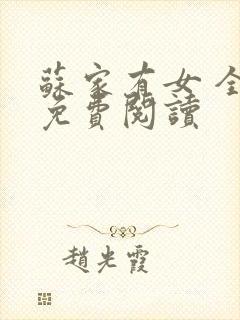 蘇家有女 全
免費閱讀
趙光霞